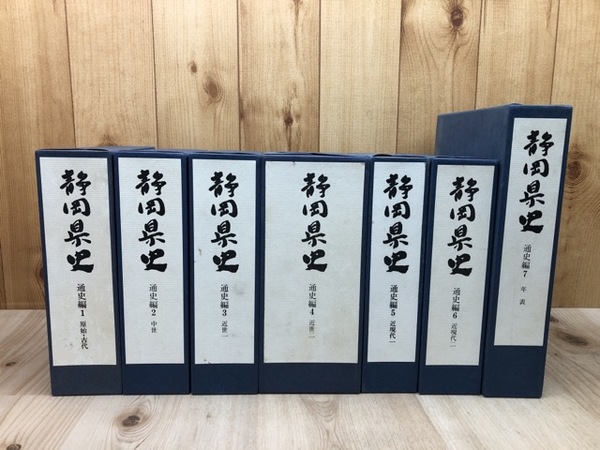 静岡県史
通史編1 原始・古代
静岡県史
通史編2 中世
静岡県史
通史編3 近世一
静岡県史
通史編4 近世二
静岡県史
通史編5 近現代一
静岡県史
通史編6 近現代二
静岡県史
通史編7 年表